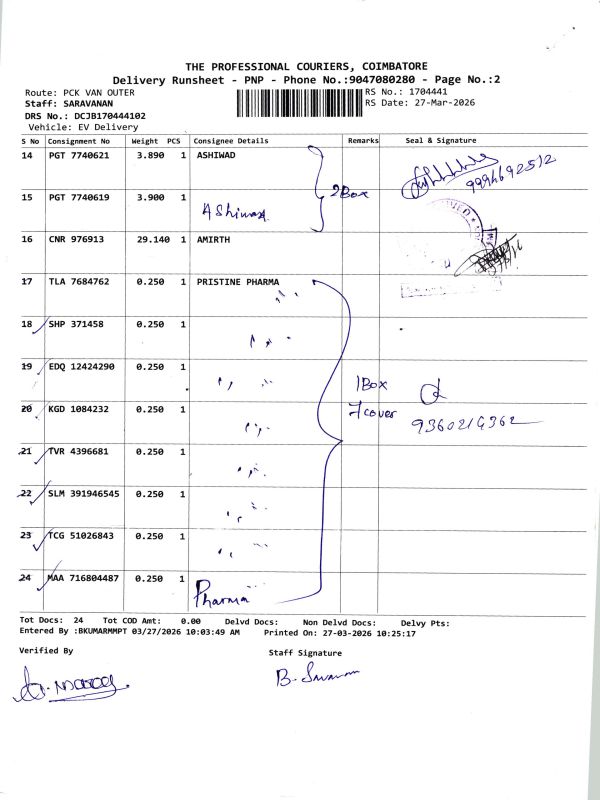 THE PROFESSIONAL COURIERS, COIMBATORE
Delivery Runsheet - PNP - Phone No.:9047080280 - Page No.:2
Route: PCK VAN OUTER
RS No.: 1704441
Staff: SARAVANAN
RS Date: 27-Mar-2026
DRS No.: DCJB170444102
Vehicle: EV Delivery
S No Consignment No Weight PCS Consignee Details Remarks Seal & Signature
14 PGT 7740621 3.890 1 ASHIWAD
9994692512
15 PGT 7740619 3.900 1 Ashiwad
2Box
16 CNR 976913 29.140 1 AMIRTH
17 TLA 7684762 0.250 1 PRISTINE PHARMA
18 SHP 371458 0.250 1
19 EDQ 12424290 0.250 1
1Box
20 KGD 1084232 0.250 1
7cover
9360214362
21 TVR 4396681 0.250 1
22 SLM 391946545 0.250 1
23 TCG 51026843 0.250 1
24 MAA 716804487 0.250 1
Pharma
Tot Docs: 24 Tot COD Amt: 0.00 Delvd Docs: Non Delvd Docs: Delvy Pts:
Entered By :BKUMARMMPT 03/27/2026 10:03:49 AM Printed On: 27-03-2026 10:25:17
Verified By
Staff Signature
B. Saravanan